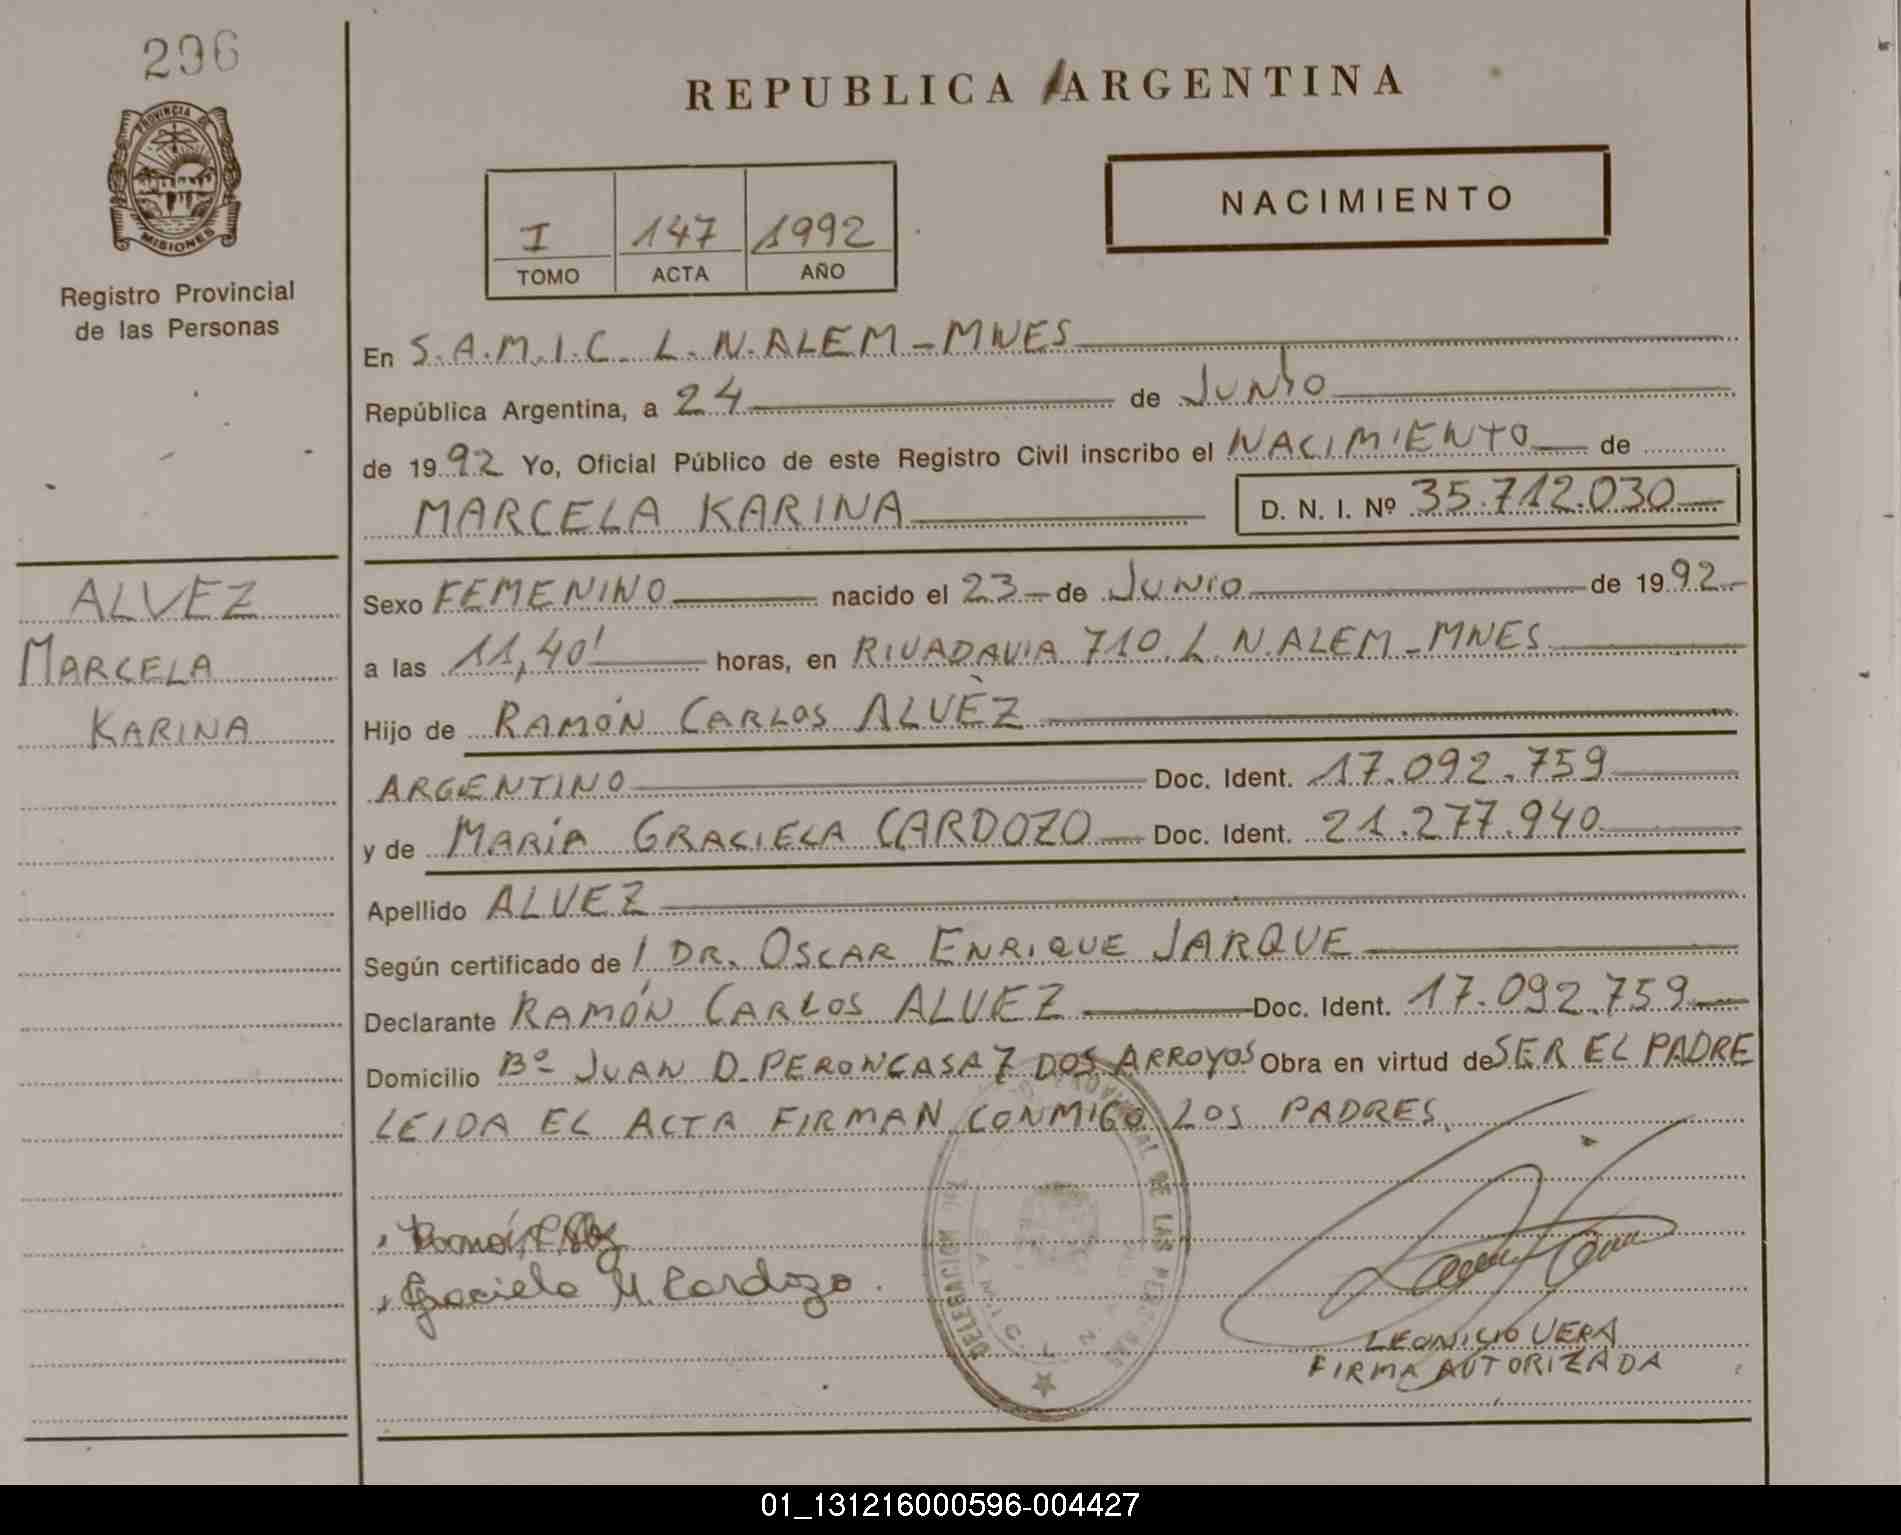 296
PROVINCIA DE
MISIONES
Registro Provincial
de las Personas
REPUBLICA ARGENTINA
NACIMIENTO
I 147 1992
TOMO ACTA AÑO
En S.A.M.I.C. L.N.ALEM-MNES
República Argentina, a 24 de JUNIO
de 1992 Yo, Oficial Público de este Registro Civil inscribo el NACIMIENTO de
MARCELA KARINA D. N. I. Nº 35.712.030
ALVEZ
MARCELA
KARINA
Sexo FEMENINO nacido el 23 de JUNIO de 1992
a las 11,40' horas, en RIVADAVIA 710 L.N.ALEM-MNES
Hijo de RAMÓN CARLOS ALVÈZ
ARGENTINO Doc. Ident. 17.092.759
y de MARÍA GRACIELA CARDOZO Doc. Ident. 21.277.940
Apellido ALVEZ
Según certificado de DR. OSCAR ENRIQUE JARQUE
Declarante RAMÓN CARLOS ALVEZ Doc. Ident. 17.092.759
Domicilio Bº JUAN D. PERON CASA 7 DOS ARROYOS Obra en virtud de SER EL PADRE
LEIDA EL ACTA FIRMAN CONMIGO LOS PADRES.
Graciela M. Cardozo
DELEGACION DE LAS
S.A.M.I.C. L. N.
LEONICIO VERA
FIRMA AUTORIZADA
01_131216000596-004427